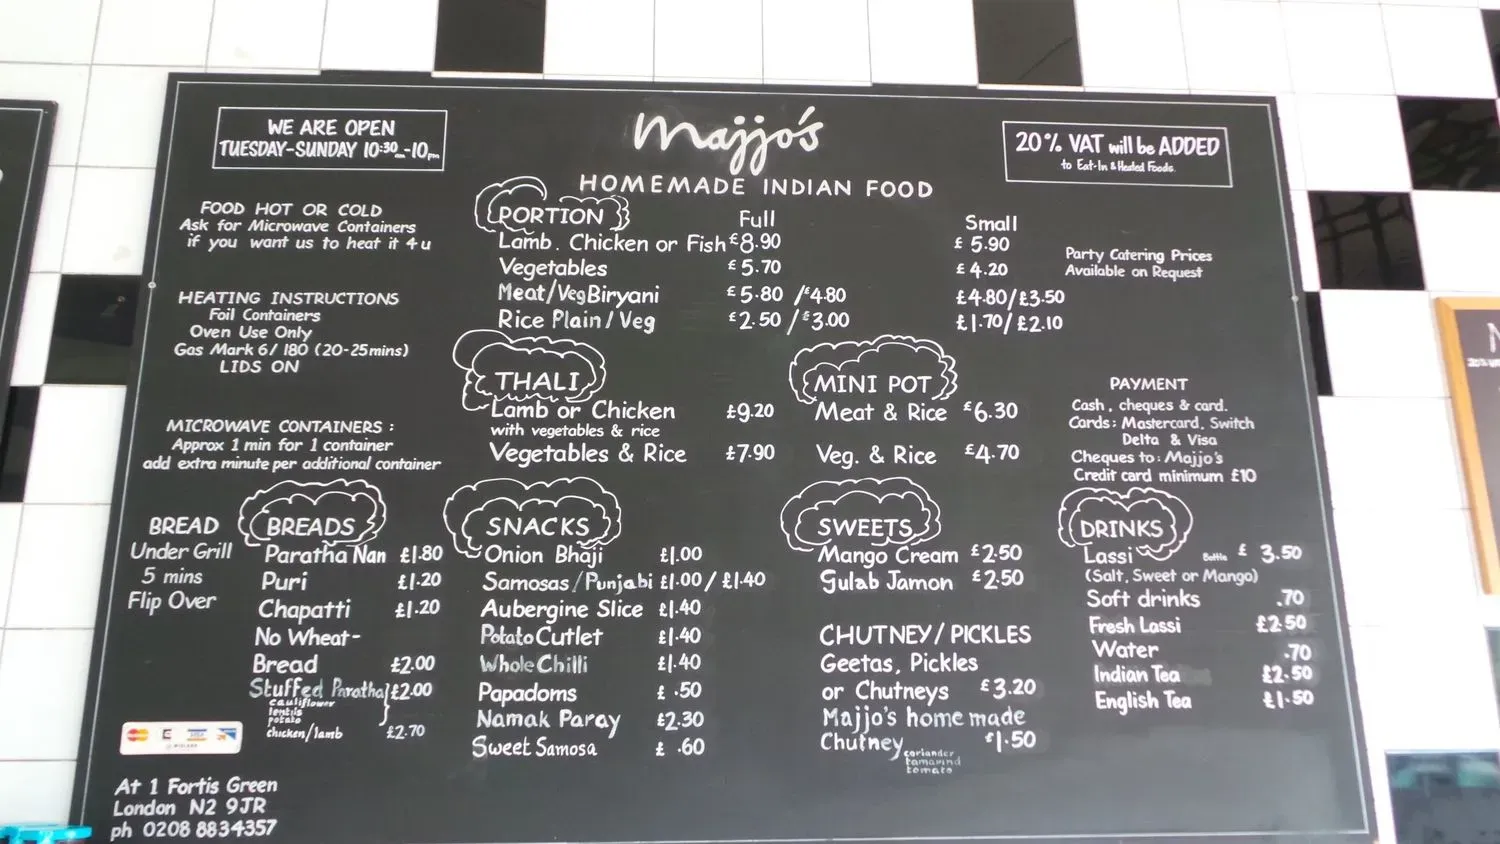 WE ARE OPEN
TUESDAY-SUNDAY 10:30am-10pm
Majjo's
HOMEMADE INDIAN FOOD
20% VAT will be ADDED
to Eat-In & Heated Foods
FOOD HOT OR COLD
Ask for Microwave Containers
if you want us to heat it 4 u
HEATING INSTRUCTIONS
Foil Containers
Oven Use Only
Gas Mark 6/180 (20-25mins)
LIDS ON
MICROWAVE CONTAINERS:
Approx 1 min for 1 container
add extra minute per additional container
PORTION Full Small
Lamb. Chicken or Fish £8.90 £5.90
Vegetables £5.70 £4.20
Meat/Veg Biryani £5.80 /£4.80 £4.80/£3.50
Rice Plain/Veg £2.50/£3.00 £1.70/£2.10
Party Catering Prices
Available on Request
THALI
Lamb or Chicken £9.20
with vegetables & rice
Vegetables & Rice £7.90
MINI POT
Meat & Rice £6.30
Veg. & Rice £4.70
PAYMENT
Cash, cheques & card.
Cards: Mastercard, Switch
Delta & Visa
Cheques to: Majjo's
Credit card minimum £10
BREAD
Under Grill
5 mins
Flip Over
BREADS
Paratha Nan £1.80
Puri £1.20
Chapatti £1.20
No Wheat-
Bread £2.00
Stuffed Paratha £2.00
cauliflower
lentils
potato
chicken/lamb £2.70
SNACKS
Onion Bhaji £1.00
Samosas/Punjabi £1.00/£1.40
Aubergine Slice £1.40
Potato Cutlet £1.40
Whole Chilli £1.40
Papadoms £.50
Namak Paray £2.30
Sweet Samosa £.60
SWEETS
Mango Cream £2.50
Gulab Jamon £2.50
CHUTNEY/PICKLES
Geetas, Pickles
or Chutneys £3.20
Majjo's home made
Chutney £1.50
coriander
tamarind
tomato
DRINKS
Lassi Bottle £3.50
(Salt, Sweet or Mango)
Soft drinks .70
Fresh Lassi £2.50
Water .70
Indian Tea £2.50
English Tea £1.50
VISA
At 1 Fortis Green
London N2 9JR
ph 0208 8834357